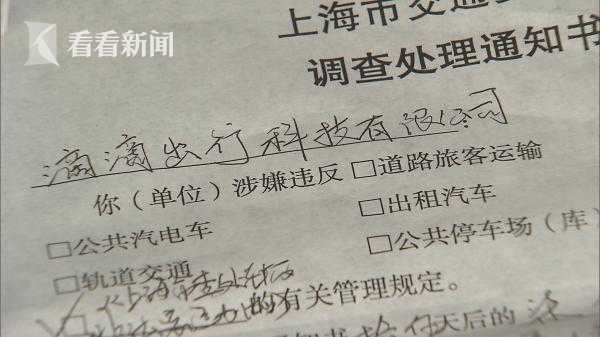 看看新闻
上海市交通
调查处理通知书
滴滴出行科技有限公司
你（单位）涉嫌违反 □道路旅客运输
□公共汽电车 □出租汽车
□轨道交通 □公共停车场（库）
的有关管理规定。
天后的